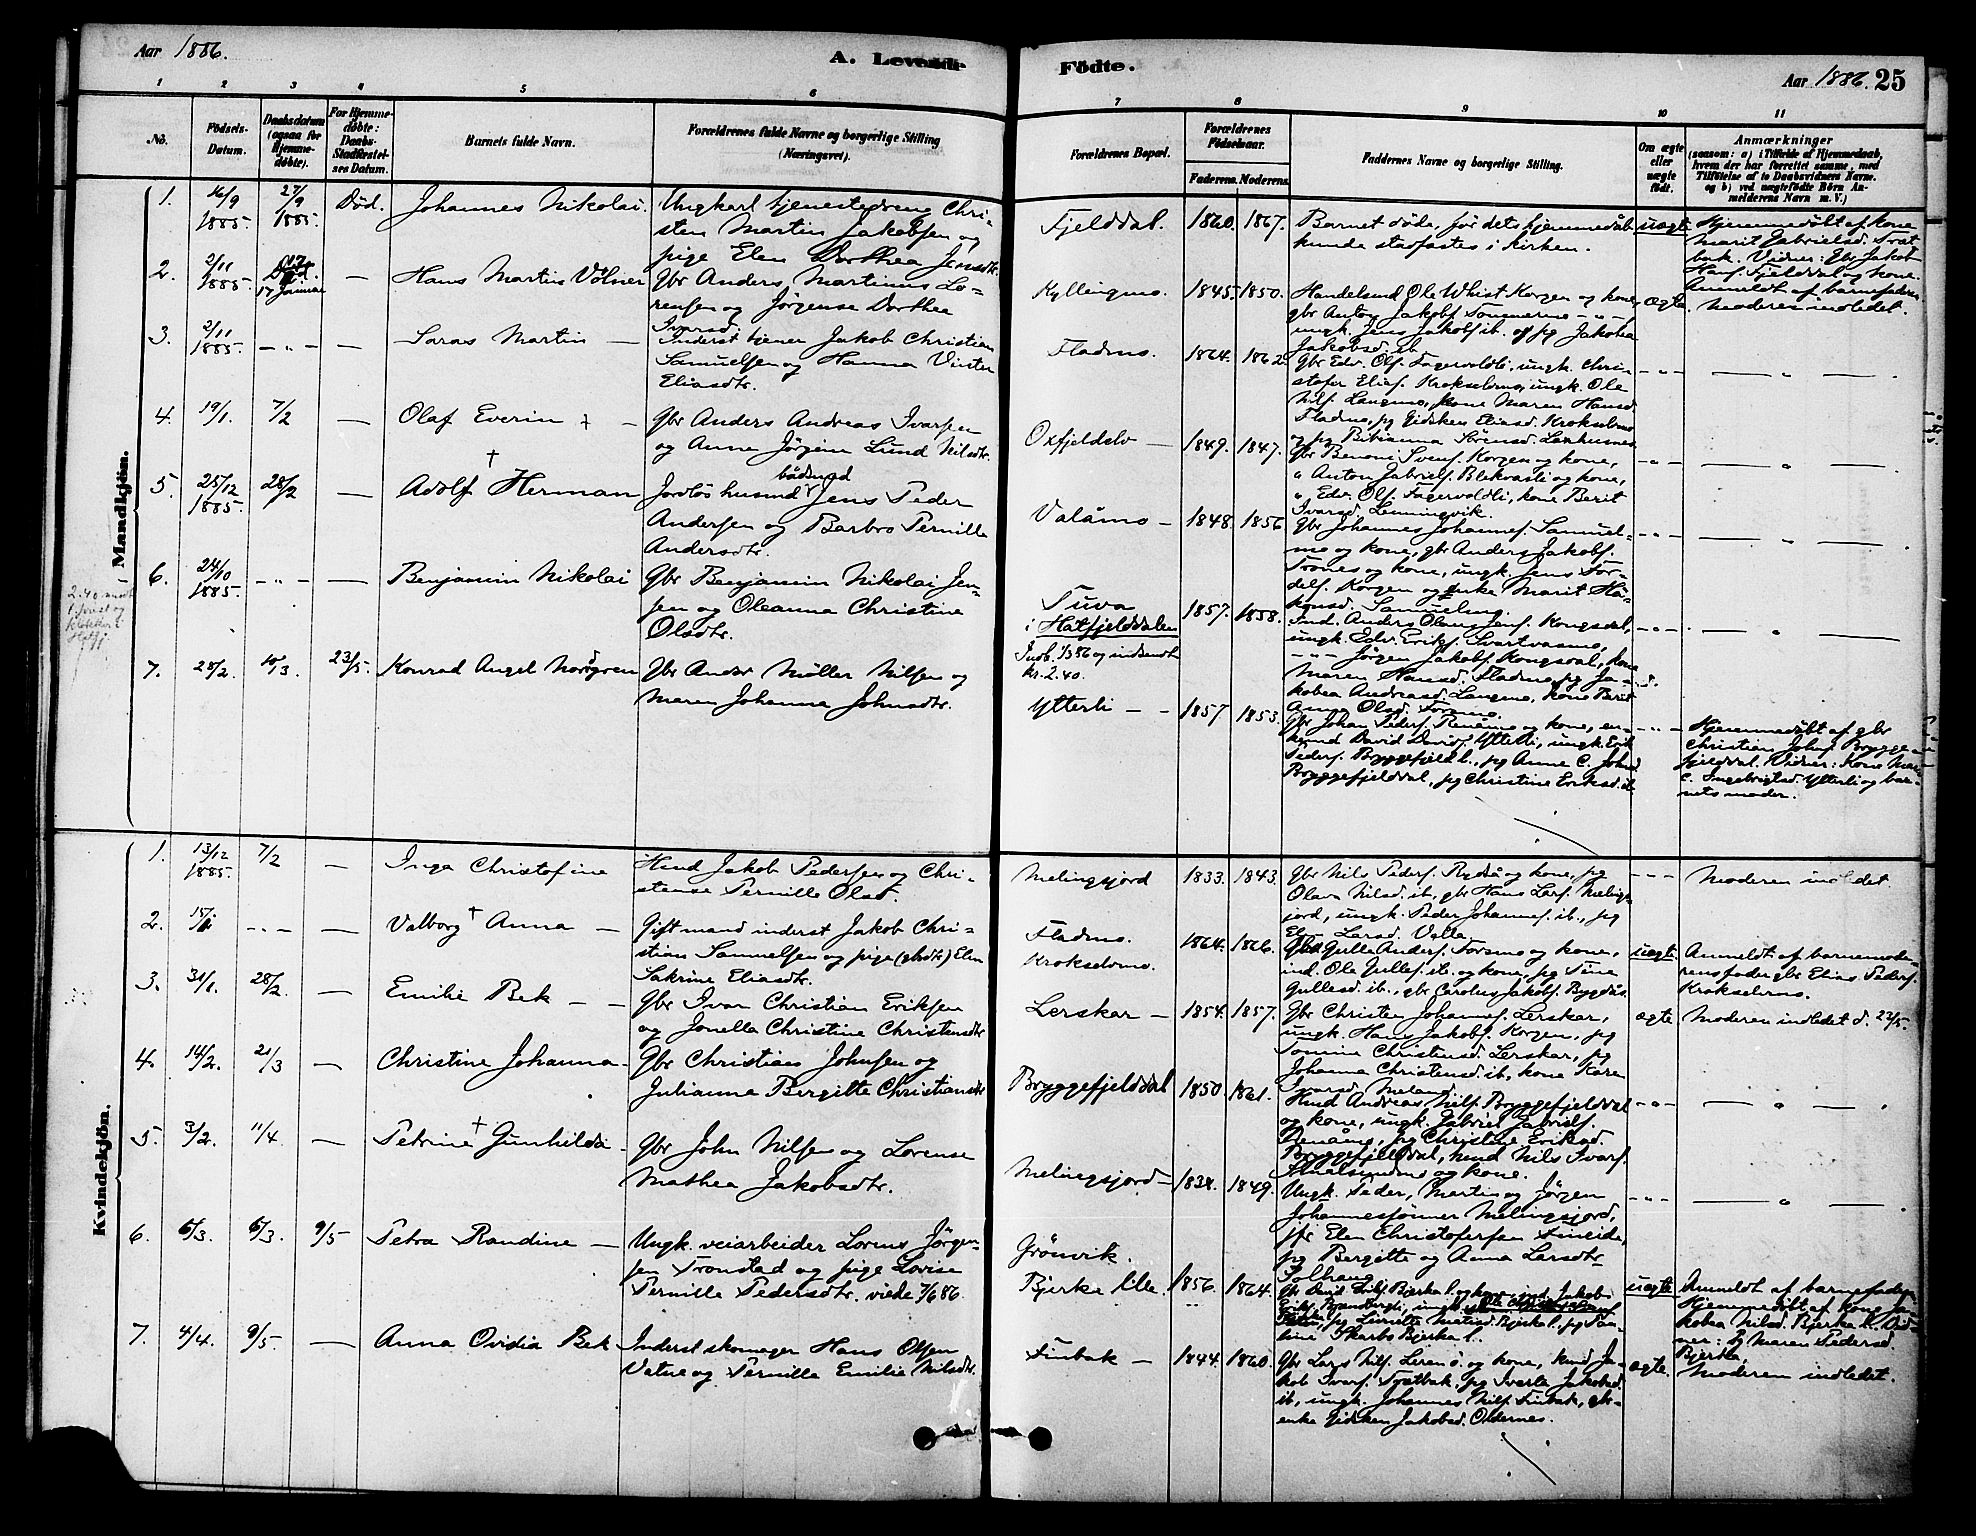 Aar 1886.
A. Levende Födte.
Aar 1886. 25
1 2 3 4 5 6 7 8 9 10 11
No.
Födsels-
Datum.
Daabsdatum
(ogsaa for
Hjemme-
döbte).
For Hjemme-
döbte:
Daabs-
Stadfæstel-
ses Datum.
Barnets fulde Navn.
Forældrenes fulde Navne og borgerlige Stilling
(Næringsvei).
Forældrenes Bopæl.
Forældrenes
Födselsaar.
Faderens. Moderens.
Faddernes Navne og borgerlige Stilling.
Om ægte
eller
uægte
födt.
Anmærkninger
(saasom: a) i Tilfælde af Hjemmedaab,
hvem der har forrettet samme, med
Tilföielse af to Daabsvidners Navne.
og b) ved uægtefödte Börn An-
melderens Navn m. V.)
Mandkjön.
1. 16/9 1885. 27/9 1885. Död. Johannes Nikolai.
Ungkarl tjenestedreng Chri-
sten Martin Jakobsen og
pige Elen Dorthea Jensdtr.
Fjelddal. 1860. 1867.
Barnet döde, för dets hjemmedåb
kunde stadfæstes i kirken.
uægte
Hjemmedöbt af kone
Marit Gabrielsd. Svart-
bak. Vidner: Gbr Jakob
Hansf. Fjelddal og kone.
Anmeldt af barnefaderen
2. 2/11 1885. Död. 17 Januar — Hans Martin Volner
Gbr Anders Martinus Lo-
rensen og Jörgense Dorthea
Ivarsd.
Kyllingmo. 1845. 1850.
Handelsmd Ole Whist Korgen og kone,
gbr Anton Jakobf. Sommermo - " -
ungk. Jens Jakobf ib. og pg Jakobea
Jakobsd. ib.
ægte.
Moderen indledet.
3. 2/11 1885. — " — — Saras Martin —
Inderst tjener Jakob Christian
Samuelsen og Hanna Vinter
Eliasdtr.
Fladmo. 1864. 1862.
Gbr Edv. Olf. Fagervoldli, ungk. Chri-
stofer Elief. Krokselvmo, ungk. Ole
Nilf. Langmo, kone Maren Hansd.
Fladmo, pg Gidsken Eliasd. Krokselvmo
og pg Bitianna Sörensd. Lenhusnes.
- " - — " — .
4. 19/1. 7/2 — Olaf Everin + —
Gbr Anders Andreas Ivarsen
og Anne Jörgine Lund Nilsdtr.
Oxfjeldslv — 1849. 1847.
Gbr Benoni Svenf. Korgen og kone,
" Anton Gabrielf. Blekvasli og kone,
" Edv. Olf. Fagervoldli, kone Berit
Ivarsd. Lenningvik.
- " - — " — .
5. 25/12 1885. 28/2 — Adolf † Herman
Jordlös husmd bådsmd Jens Peder
Andersen og Barbro Pernille
Andersdtr.
Valåmo — 1848. 1856
Gbr Johannes Johannef. Samuel-
mo og kone, gbr Anders Jakobf.
Trones og kone, ungk. Jens For-
delf. Korgen og enke Marit Hå-
konsd. Samuelmo.
- " - — " — .
6. 24/10 1885. - " - — Benjamin Nikolai
Gbr Benjamin Nikolai Jen-
sen og Oleanna Christine
Olsdtr.
Tuva
i Hatfjelddalen
Indb. 1/3 86 og indsendt
kr. 2.40.
1857. 1858.
Ind. Anders Olaus Jenf. Kongsdal,
ungk. Edv. Erikf. Svartvasmo,
- " - Jörgen Jakobf. Kongsdal, kone
Maren Hansd. Fladmo, pg Ja-
kobea Andreasd. Langmo, kone Berit
Anna Olsd. Forsmo.
- " - — " — .
7. 28/2. 10/3 23/5. Konrad Angel Norgren
Gbr Ander Möller Nilsen og
Maren Johanna Johnsdtr.
Ytterli — 1857 1853.
Gbr Johan Pederf. Renåmo og kone, en-
kemd David Davidf. Ytterli, ungk. Erik
Pederf. Bryggefjeld l., pg Anne C. Johnsd.
Bryggefjelddal, pg Christine Eriksd. ib.
- " -
Hjemmedöbt af gbr
Christian Johnf. Brygge-
fjelddal. Vidner: Kone Maren
C. Ingebrigtsd. Ytterli og bar-
nets moder.
Kvindekjön.
1. 13/12 1885. 7/2 — Inga Christofine
Hmd Jakob Pedersen og Chri-
stense Pernille Olsd.
Melingsjord 1833. 1843.
Gbr Nils Pederf. Rydså og kone, pg
Olava Nilsd. ib, gbr Hans Larf. Melings-
jord, ungk. Peder Johannef. ib., pg
Elen Larsd. Valla.
- " - Moderen indledet.
2. 15/1 - " - — Valborg † Anna —
Gift mand inderst Jakob Chri-
stian Samuelsen og pige (gbdtr) Elen
Sakrine Eliasdtr.
Fladmo.
Krokselvmo.
1864. 1866.
Gbr Gulle Anderf. Forsmo og kone,
ind. Ole Gullef. ib. og kone, pg Tine
Gullesd. ib., gbr Carolius Jakobf. Bygdås.
uægte
Anmeldt af barnemode-
rens fader gbr Elias Pederf.
Krokselvmo.
3. 31/1. 28/2 — Emilie Bek —
Gbr Ivar Christian Eriksen
og Jonella Christine Christensdtr
Lerskar — 1854. 1857.
Gbr Christen Johannef. Lerskar,
ungk. Hans Jakobf. Korgen, pg
Tomine Christensd. Lerskar, pg
Johanna Christensd. ib, kone Karen
Ivarsd. Meland.
ægte Moderen indledet d. 23/5.
4. 14/2. 21/3 — Christine Johanna
Gbr Christian Johnsen og
Julianna Bergitte Christiansdtr
Bryggefjelddal 1850. 1861.
Hmd Andreas Nilf. Bryggefjelddal
og kone, ungk. Gabriel Gabrielf.
Renåmo, pg Christine Eriksd.
Bryggefjelddal, hmd Nils Ivarf.
og kone.
- " - — " — .
5. 3/2. 11/4 — Petrine † Gunhilda
Gbr John Nilsen og Lorense
Mathea Jakobsdtr.
Melingsjord — 1834. 1849.
Ungk. Peder, Martin og Jörgen
Johannessönner Melingsjord,
jfr Elen Christofersen Fineide,
pg Bergitte og Anna Larsdtr
Solhaug.
- " - — " — .
6. 5/3. 6/3. 9/5 Petra Randine —
Ungk. veiarbeider Lorens Jörgen-
sen Tronstad og pige Lovise
Pernille Pedersdtr. viede 7/6 86.
Grönvik.
Bjerka lille 1856. 1864.
uægte
Anmeldt af barnefader.
Hjemmedöbt af kone Ja-
kobea Nilsd. Bjerka l. Vid-
ner: Pg Maren Pedersd.
Bjerka.
7. 4/4. 9/5. — Anna Ovidia Bek
Inderst skomager Hans Olsen
Vatne og Pernille Emilie Nilsdtr.
Finbak — 1844. 1860.
Gbr Lars Nilf. Leren ö. og kone, hmd Ja-
kob Ivarf. Tostbak, pg Iverta Jakobsd.
ib, ungk. Johannes Nilf. Finbak,
enke Gidsken Jakobsd. Oldernes.
ægte. Moderen indledet.